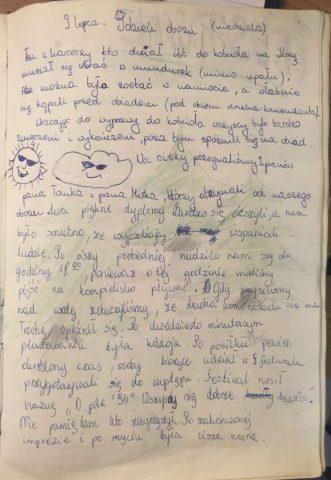 9 lipca. I dzień obozu (niedziela)
Ten z harcerzy kto chciał iść do kościoła na Mszę
musiał się ubrać w mundurek (mimo upału).
Ale można było zostać w namiocie, a właśnie
się kąpali przed obiadem (pod okiem druha komendanta).
Wracając do wyprawy do kościoła wszyscy byli bardzo
zmęczeni i wykończeni, poza tym spóźnili się na obiad.
Na ciszy pożegnaliśmy 2 panów
pana Tanka i pana Mirka, którzy otrzymali od naszego
obozu dwa piękne dyplomy. Bardzo się cieszyli, a nam
było smutno, że wyjeżdżają wspaniali
ludzie. Po ciszy poobiedniej nudziło nam się do
godziny 18⁰⁰, ponieważ o tej godzinie mieliśmy
pójść na kąpielisko pływać. Gdy przyszliśmy
nad wodę zobaczyliśmy, że druha komendanta nie ma
Trochę spóźnił się. Po dwudziesto minutowym
plażowaniu była kolacja. Po posiłku pewien
określony czas, osoby biorące udział w festiwalu
przygotowywali się do występu. Festiwal nosił
nazwę „O pole '95" Wszyscy się dobrze bawili!
Nie pamiętam kto zwyciężył. Po zakończonej
imprezie i po myciu była cisza nocna.